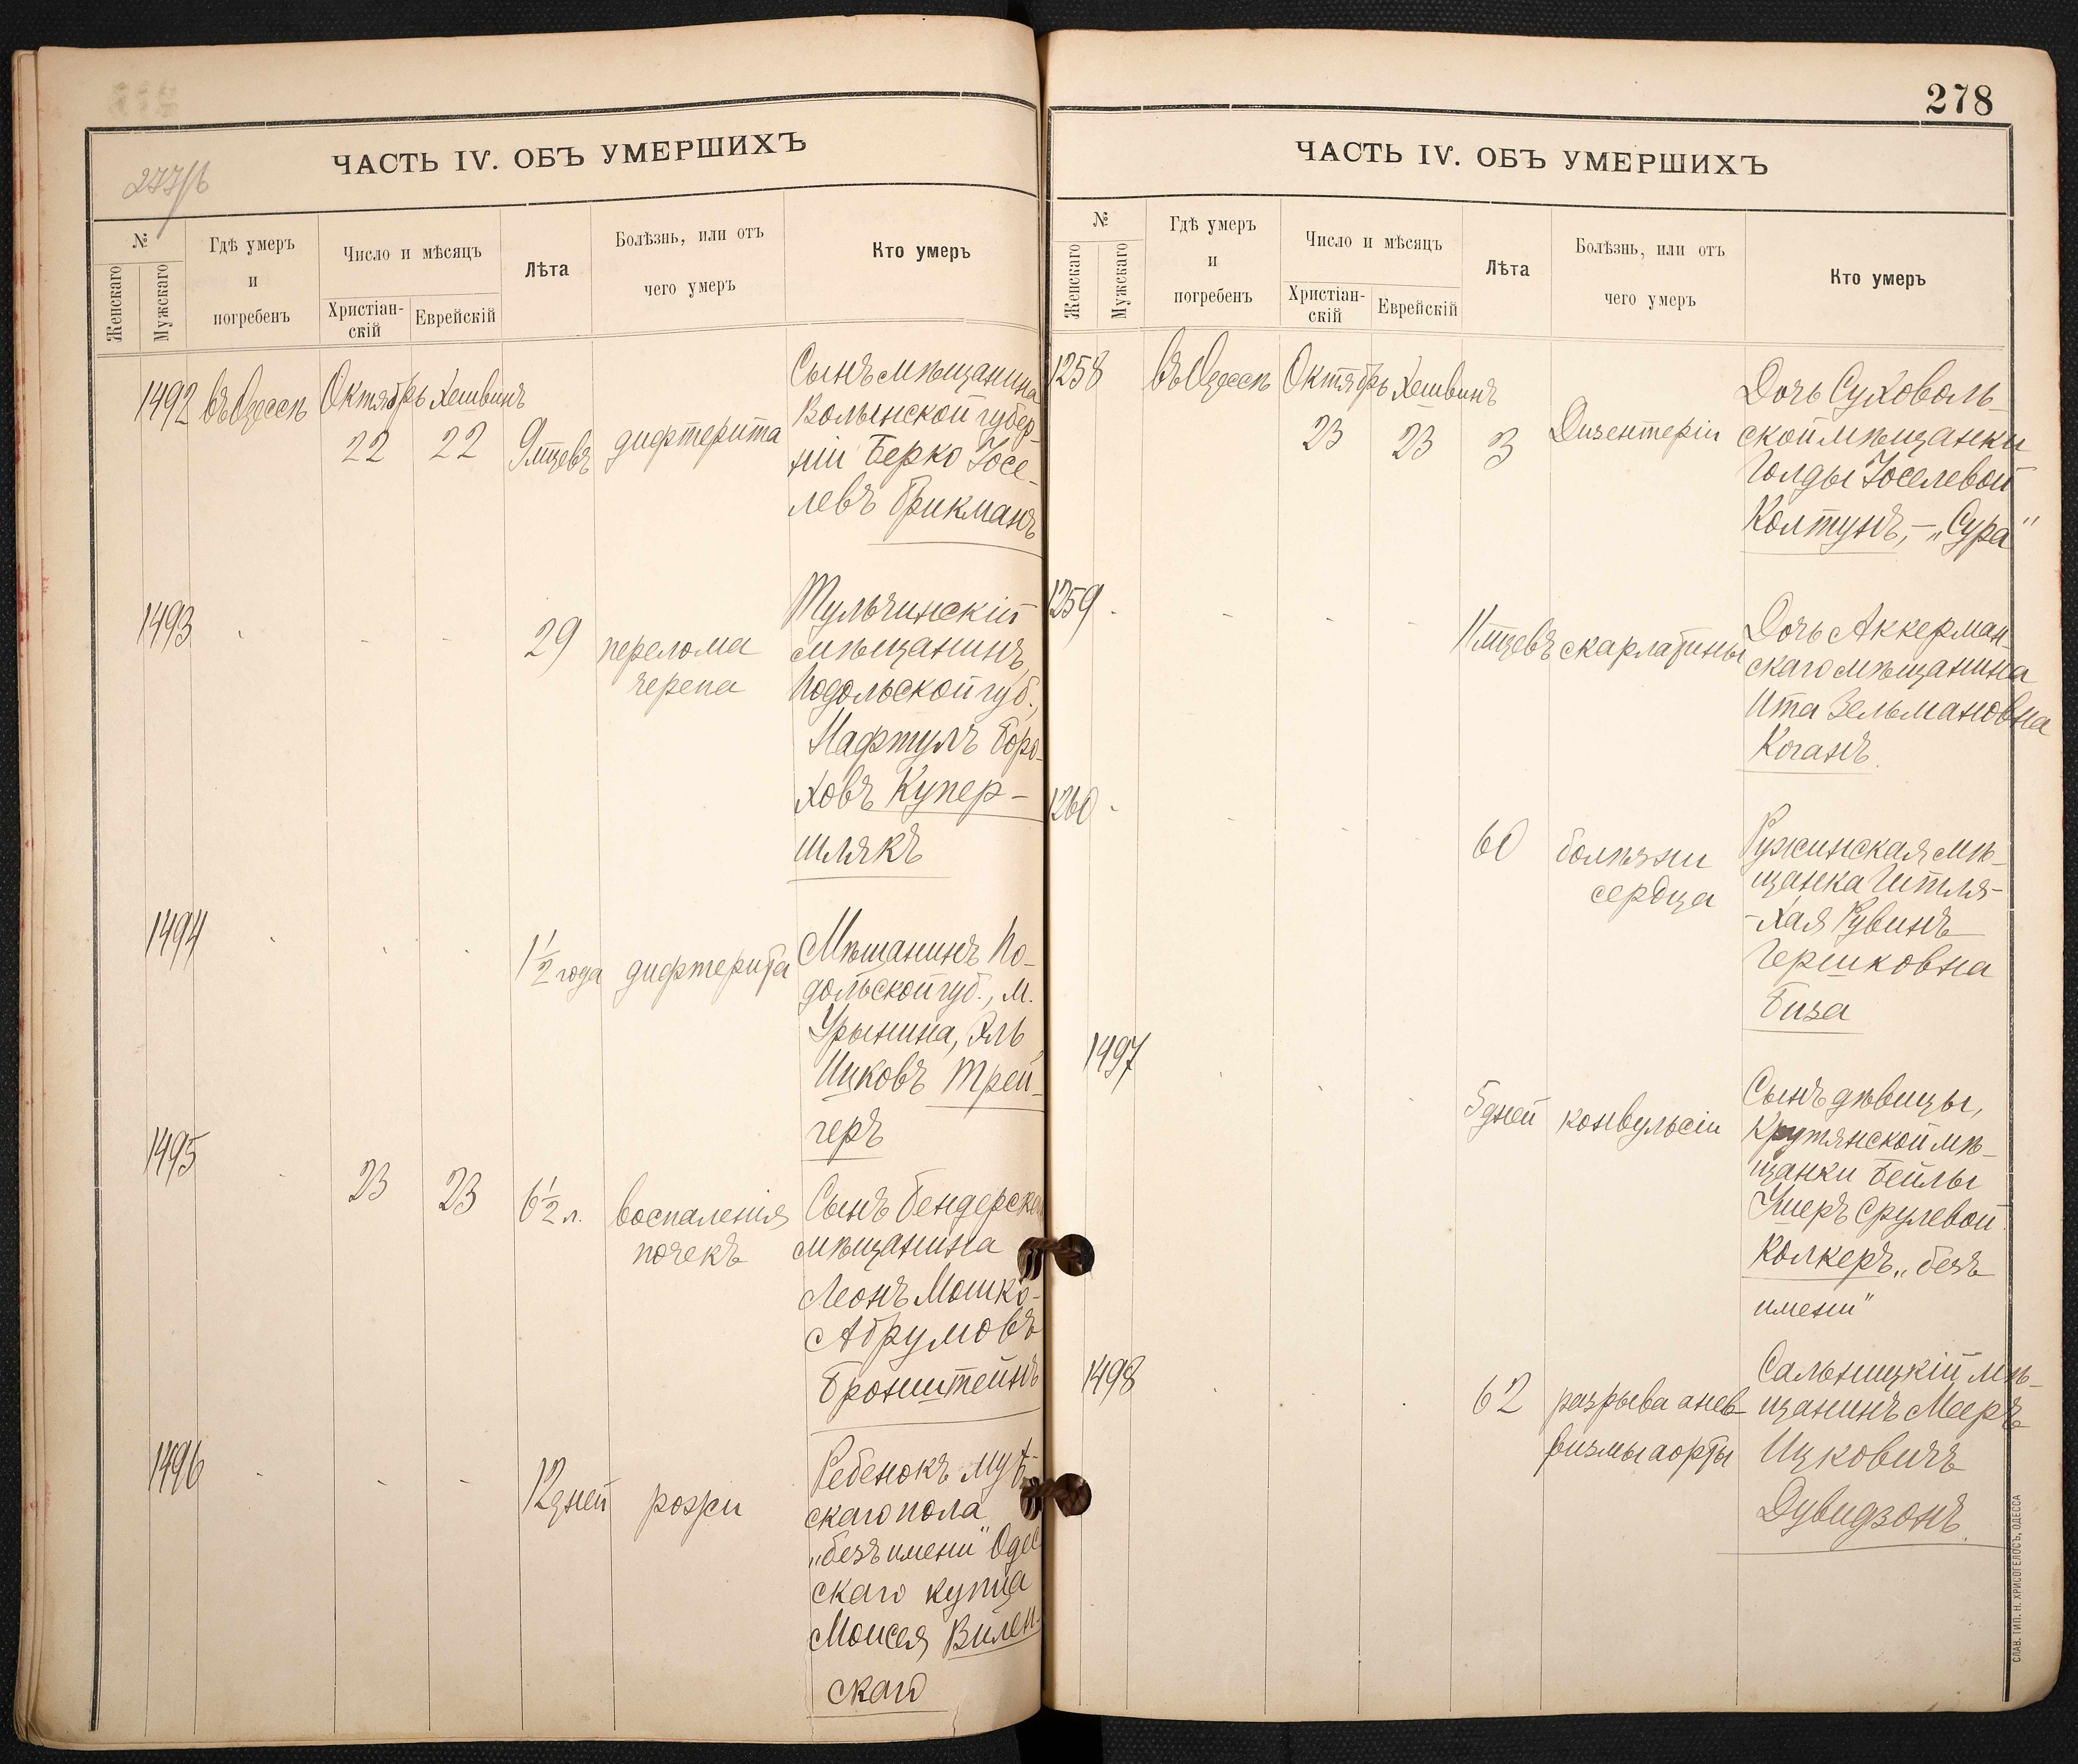 277/б
ЧАСТЬ IV. ОБЪ УМЕРШИХЪ
№
Женскаго
Мужскаго
Гдѣ умеръ
и
погребенъ
Число и мѣсяцъ
Христіан-
скій
Еврейскій
Лѣта
Болѣзнь, или отъ
чего умеръ
Кто умеръ
1492 въ Одессѣ Октябрь Хешвинъ
22 22 9 мцевъ дифтерита
Сынъ мѣщанина
Волынской губер-
ніи Берко Іосе-
левъ Брикманъ
1493
29 перелома
черепа
Тульчинскій
мѣщанинъ,
Подольской губ.,
Нафтулъ Боро-
ховъ Купер-
шлякъ
1494
1 1/2 года дифтерита
Мѣщанинъ По-
дольской губ., м.
Урынина, Эль
Ицковъ Трей-
геръ
1495
23 23 6 1/2 л. воспаленія
почекъ
Сынъ Бендерска
мѣщанина
Леонъ Мошко-
Абрумовъ
Бронштейнъ
1496
12 дней рожи
Ребенокъ муж-
скаго пола
„безъ имени" Одес
скаго купца
Моисея Вилен-
скаго
278
ЧАСТЬ IV. ОБЪ УМЕРШИХЪ
№
Женскаго
Мужскаго
Гдѣ умеръ
и
погребенъ
Число и мѣсяцъ
Христіан-
скій
Еврейскій
Лѣта
Болѣзнь, или отъ
чего умеръ
Кто умеръ
1258 въ Одессѣ Октябрь Хешвинъ
23 23 3 Дизентеріи
Дочь Суховоль-
ской мѣщанки
Голды Іоселевой
Колтунъ, – „Сура"
1259
11 мцевъ скарлатины
Дочь Аккерман-
скаго мѣщанина
Ита Зельмановна
Коганъ.
1260
60 болѣзни
сердца
Ружинская мѣ-
щанка Итля-
-Хая Рувинъ
Гершковна
Биза
1497
5 дней конвульсіи
Сынъ дѣвицы,
Крутянской мѣ-
щанки Бейлы
Ушеръ Срулевой
Колкеръ „безъ
имени"
1498
62 разрыва анев-
ризмы аорты
Сальницкій мѣ-
щанинъ Мееръ
Ицковичъ
Дувидзонъ.
СЛАВ. ТИП. Н. ХРИСОГЕЛОСЪ, ОДЕССА